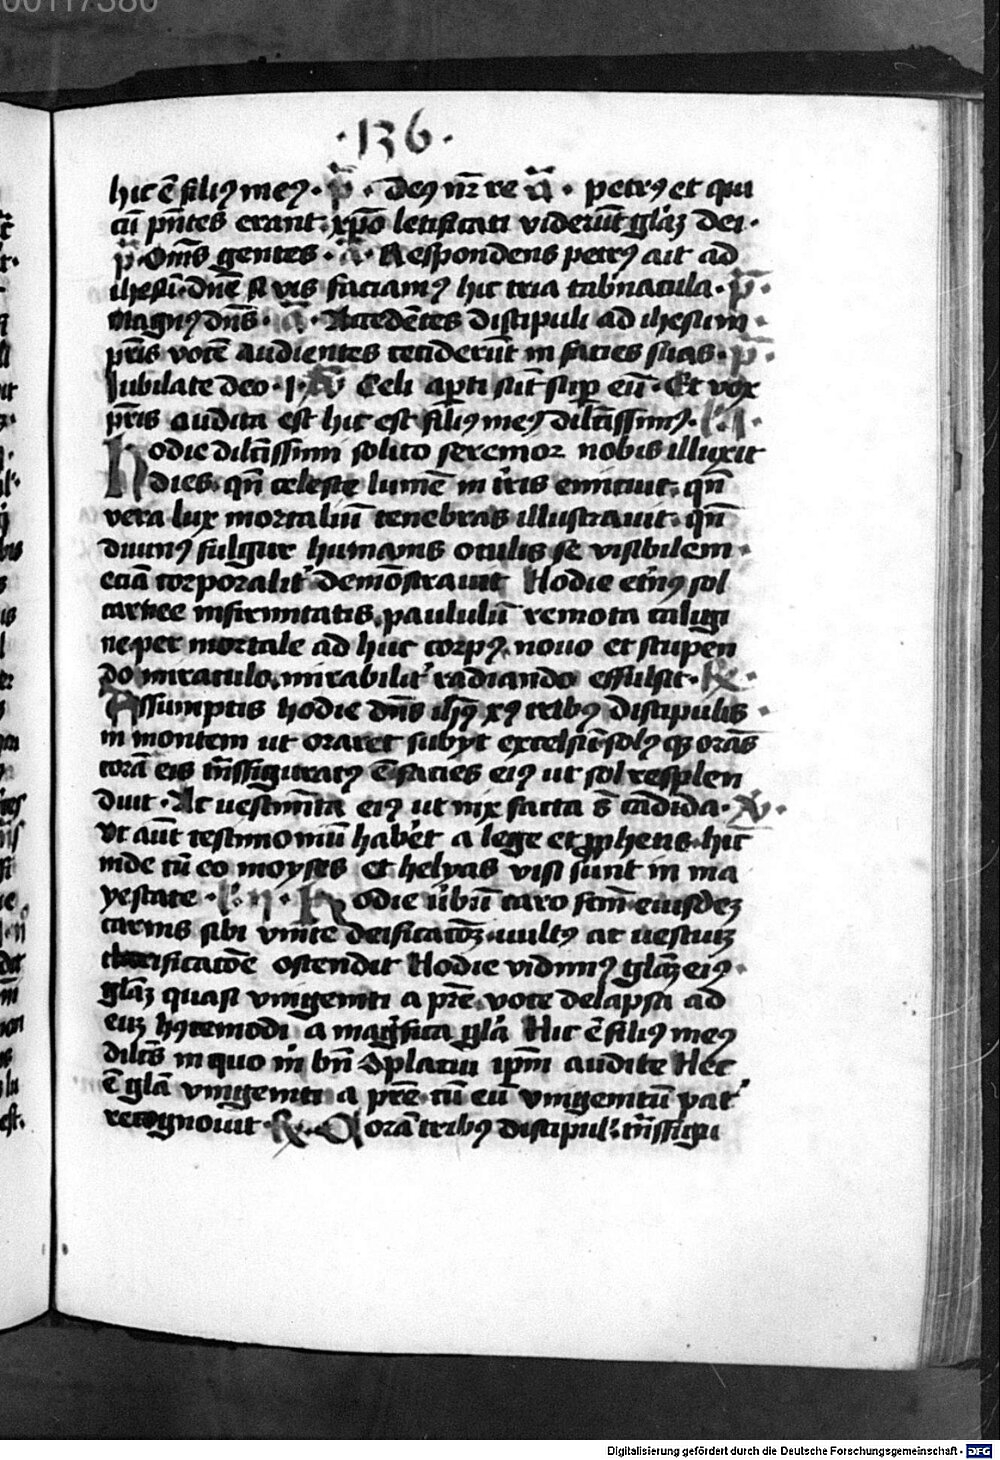 00117380
·136·
hic ē filiꝰ meꝰ · p̄ · Deꝰ nr̄ re ā · petrꝰ et qui
cū pn̄tes erant xp̄o letificati viderūt glāȝ dei·
p̄ · Om̄s gentes · ā · Respondens petrꝰ ait ad
ihesū · dn̄e si vis faciamꝰ hic tria tab̄nacula · p̄ ·
Magnꝰ dn̄s · ā · Accedētes discipuli ad ihesum ·
pr̄is vocē audientes ceciderūt in facies suas · p̄ ·
Jubilate deo · ꝟ Celi aꝑti sūt suꝑ eū · Et vox
pr̄is audita est hic est filiꝰ meꝰ dilc̄issimꝰ · l̄ ·
hodie dilc̄issimi solito seremor nobis illuxit
dies · qn̄ celeste lumē in t̄ris enituit · qn̄
vera lux mortaliū tenebras illustrauit · qn̄
diuinꝰ fulgur humanis oculis se visibilem ·
eciā corporalit̾ demōstrauit Hodie et̾nꝰ sol
carnee infirmitatis paululū remota caligi
ne per mortale ad huc corpꝰ nouo et stupen
do miraculo mirabilit̾ radiando effulsit · ℞ ·
Assumptis hodie dn̄s ihꝰ xꝰ tribꝰ discipulis ·
in montem ut oraret subyt excelsū solꝰ qȝ orās
corā eis tn̄sfiguratꝰ ē facies eiꝰ ut sol resplen
duit · At uestim̄ta eiꝰ ut nix facta s̄ cādida · ꝟ ·
Vt aūt testimoniū hab̾et a lege et ꝓphetis hic̄
inde cū eo moyses et helyas visi sunt in ma
yestate · l̄ · ij · Hodie ūbū caro fcm̄ eiusdeȝ
carnis sibi vnite deificatōȝ uultꝰ ac uestiuȝ
clarificatōe ostendit Hodie vidimꝰ glāȝ eiꝰ ·
glāȝ quasi vnigeniti a pr̄e voce delapsa ad
euȝ hꝰcemodi a magͥfica glā Hic ē filiꝰ meꝰ
dilc̄s in quo m̄ bn̄ ꝯplacui ip̄m audite Hec
ē glā vnigeniti a pr̄e cū eū vnigenitū pat̾
recognouit · ℞ · Corā tribꝰ discipul̾ tn̄sfigu
Digitalisierung gefördert durch die Deutsche Forschungsgemeinschaft · DFG